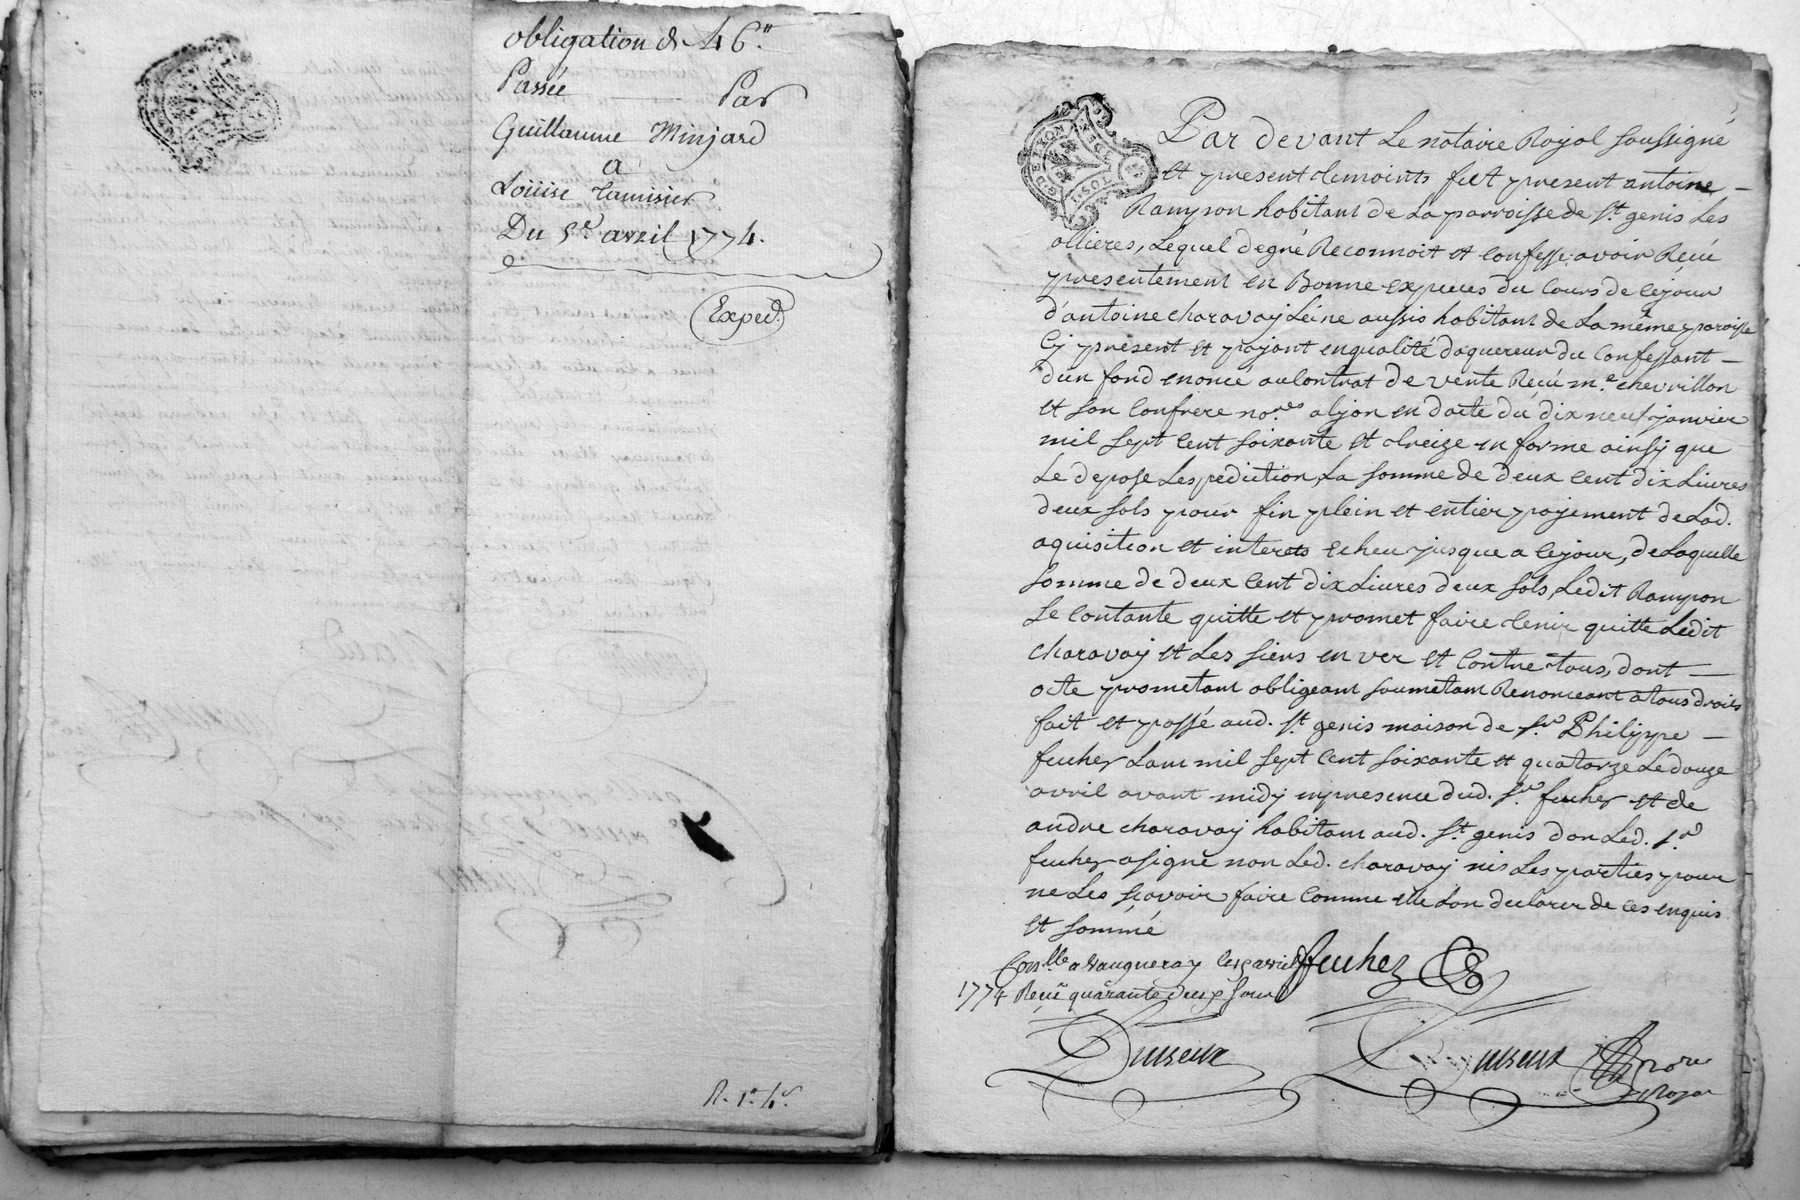 obligation de 46.#
Passée Par
Guillaume Minjard
a
Louise Tamisier
Du 5e. avril 1774.
Exped.
R. 1a. 4s.
Par devant Le notaire Royal soussigné
et present temoints fut present antoine
Rampon habitant de La parroisse de st. genis Les
ollieres, Lequel de gré Reconnoit et confesse avoir Reçu
presentement en Bonne expeces du cours de ce jour
d'antoine charavay Leine aussis habitant de La même paroisse
Cy present et payant en qualité daquereur du Confessant
dun fond enoncé au Contrat de vente Reçú me. chevrillon
et son Confrere nores. a lyon en dacte du dix neuf janvier
mil sept cent soixante et treize en forme ainsy que
Le depose Lespedition, La somme de deux cent dix Livres
deux sols pour fin plein et entier payement de Lad.
aquisition et interets echeu jusque a ce jour, de Laquelle
somme de deux cent dix Livres deux sols, Ledit Rampon
se contante quitte et promet faire tenir quitte Ledit
charavay et Les siens en ver et Contre tous, dont
acte prometant obligeant soumetant Renonceant a tous droits
fait et passé aud. st. genis maison de sr. Philippe
feuher Lan mil sept cent soixante et quatorze Le douze
avril avant midy en presence dud. sr. feuher et de
andre charavay habitant aud. st. genis don Led. sr.
feuher a signé non Led. charavay nis Les parties pour
ne Les sçavoir faire Comme elle Lon declarer de ces enquis
et sommé
Conlle a Vaugneray le avril feuher
1774 Reçu quarante deux sous